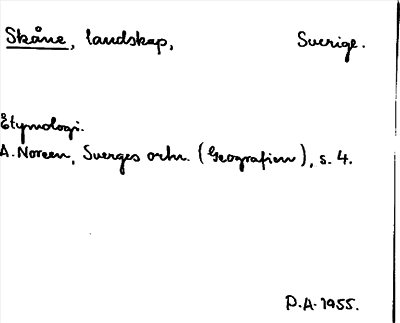 Skåne, landskap, Sverige.
Etymologi.
A. Noreen, Sverges ortn. (Geografien), s. 4.
P.A. 1955.